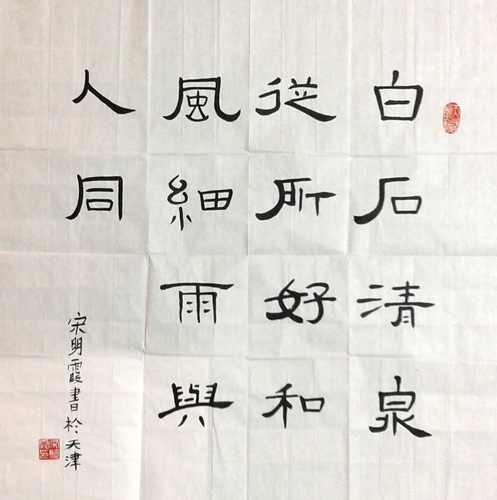 白石清泉
從所好和
風細雨與
人同
宋明霞書於天津